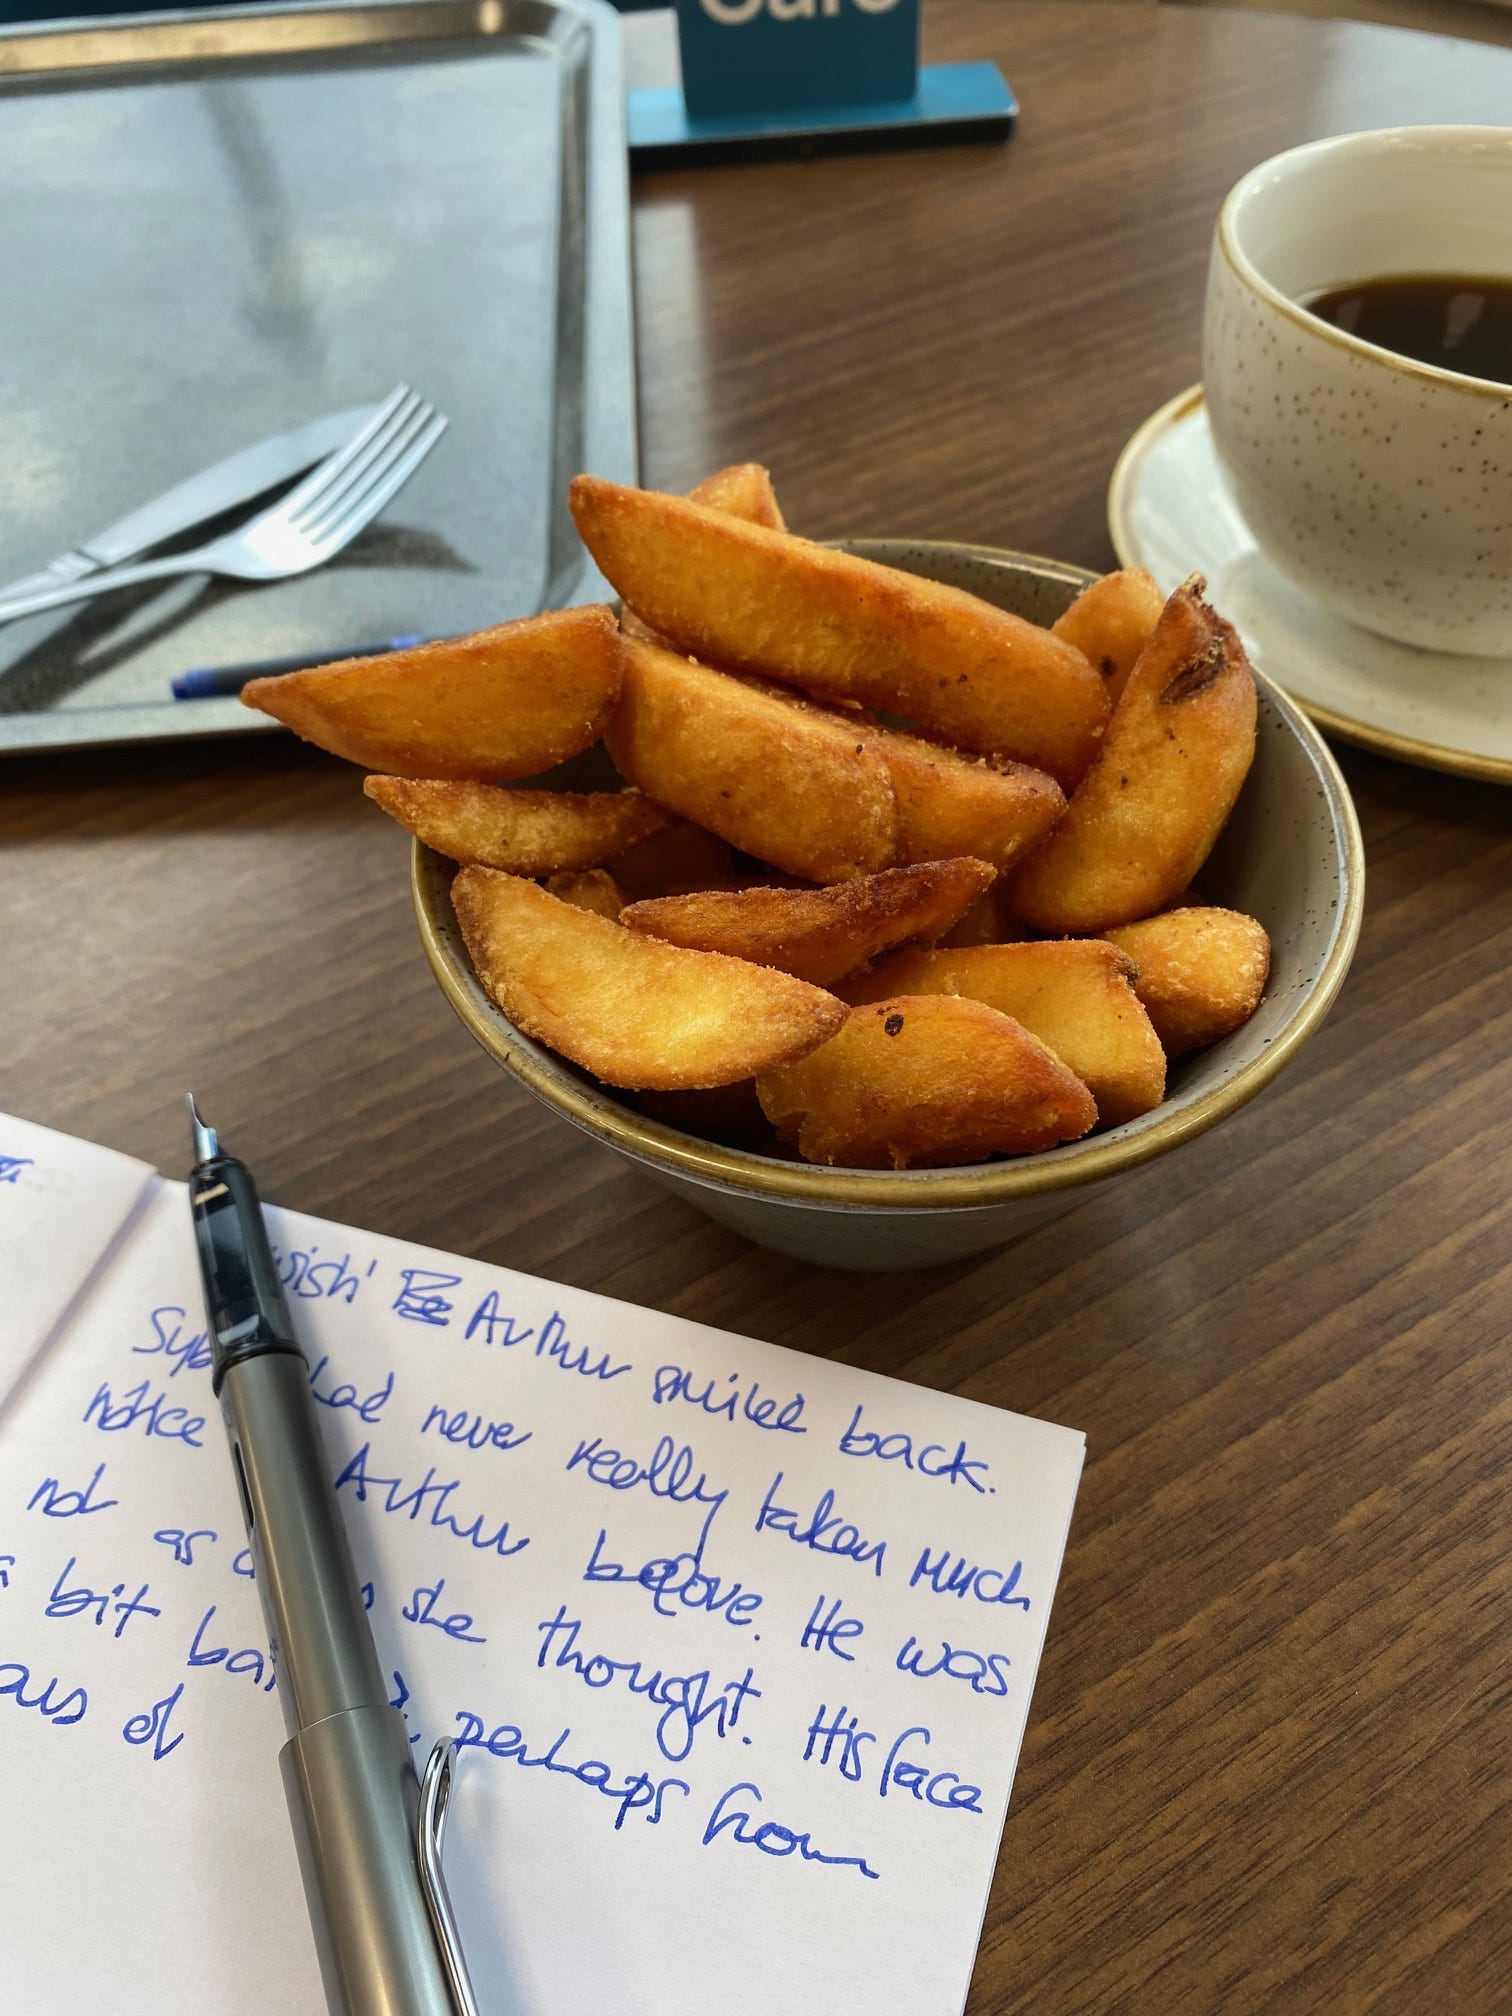 Café
wish' Arthur smiled back.
had never really taken much
notice Arthur before. He was
not as she thought. His face
bit perhaps from
of